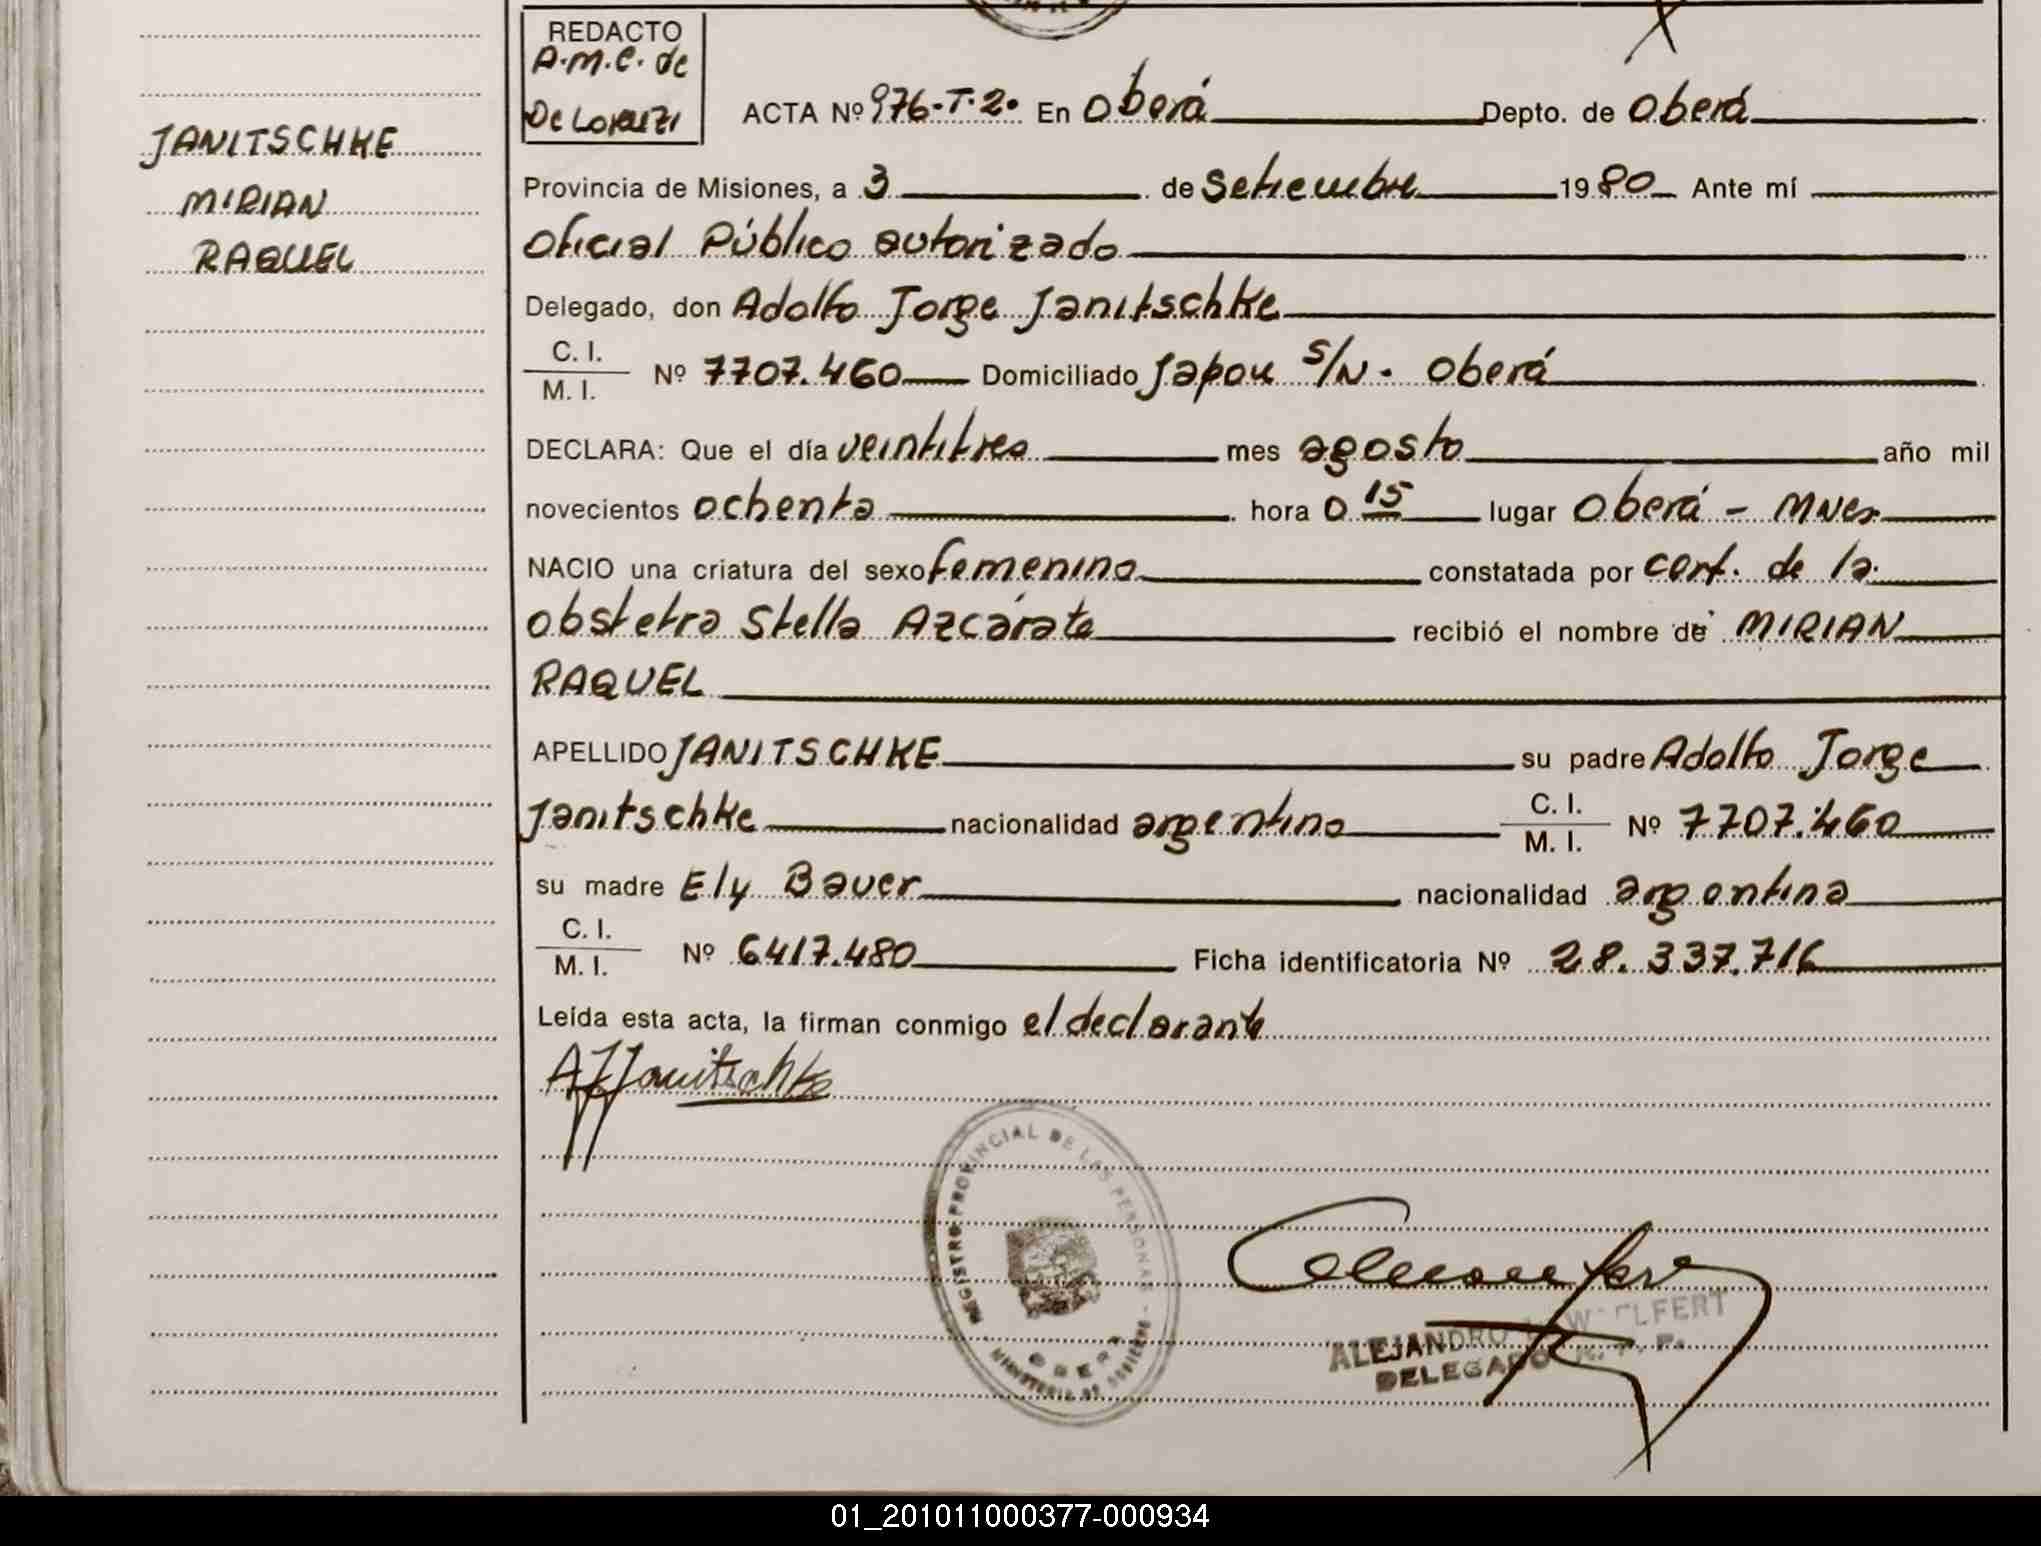 JANITSCHKE
MIRIAN
RAQUEL
REDACTO
A.M.C. de
De Lorenzi
ACTA Nº 976-T-2. En Oberá Depto. de Oberá
Provincia de Misiones, a 3 de Setiembre 1980 Ante mí
Oficial Público autorizado
Delegado, don Adolfo Jorge Janitschke
C. I.
M. I. Nº 7707.460 Domiciliado Japon S/N. Oberá
DECLARA: Que el día veintitres mes agosto año mil
novecientos ochenta hora 0 15 lugar Oberá - Mnes
NACIO una criatura del sexo femenino constatada por cert. de la
obstetra Stella Azcárate recibió el nombre de MIRIAN
RAQUEL
APELLIDO JANITSCHKE su padre Adolfo Jorge
Janitschke nacionalidad argentino C. I.
M. I. Nº 7707.460
su madre Ely Bauer nacionalidad argentina
C. I.
M. I. Nº 6417.480 Ficha identificatoria Nº 28.337.716
Leída esta acta, la firman conmigo el declarante
AJJanitschke
REGISTRO PROVINCIAL DE LAS PERSONAS -
OBERA
MINISTERIO DE GOBIERNO
ALEJANDRO
DELEGADO R. P. P.
01_201011000377-000934